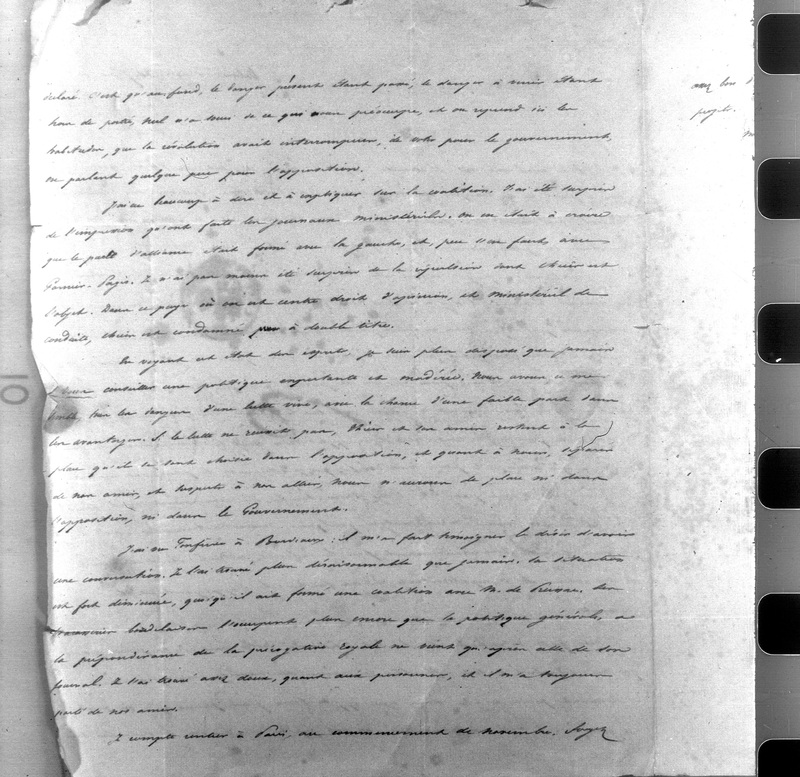 déclaré. C'est qu'au fond, le danger présent étant passé, le danger à venir étant
hors de portée, nul n'a souci de ce qui nous préoccupe, et on reprend ici les
habitudes, que la révolution avait interrompues, de voter pour le gouvernement,
en parlant quelque peu pour l'opposition.
J'ai eu beaucoup à dire et à expliquer sur la coalition. J'ai été surpris
de l'impression qu'ont faite les journaux ministériels. On en était à croire
que le pacte d'alliance était formé avec la gauche, et peu s'en faut avec
Garnier-Pagès. Je n'ai pas moins été surpris de la répulsion dont Thiers est
l'objet. Dans ce pays où on est centre droit d'opinion, et ministériel de
conduite, Thiers est condamné à double titre.
En voyant cet état des esprits, je suis plus disposé que jamais
à vous conseiller une politique expectante et modérée. Nous avons ce me
semble tous les dangers d'une lutte vive, avec la chance d'une faible part dans
les avantages. Si la lutte ne réussit pas, Thiers et ses amis restent à la
place qu'ils se sont choisie dans l'opposition, et quant à nous, séparés
de nos amis, et suspects à nos alliés, nous n'aurons de place ni dans
l'opposition, ni dans le Gouvernement.
J'ai vu Fonfrède à Bordeaux: il m'a fait témoigner le désir d'avoir
une conversation. Je l'ai trouvé plus déraisonnable que jamais. Sa situation
est fort diminuée, quoiqu'il ait formé une coalition avec M. de
l'occupent plus encore que la politique générale, et
la prépondérance de la prérogative royale ne vient qu'après celle de son
journal. Je l'ai trouvé assez doux, quant aux personnes, et il m'a toujours
parlé de nos amis.
Je compte rentrer à Paris, au commencement de novembre. Soyez
projets.